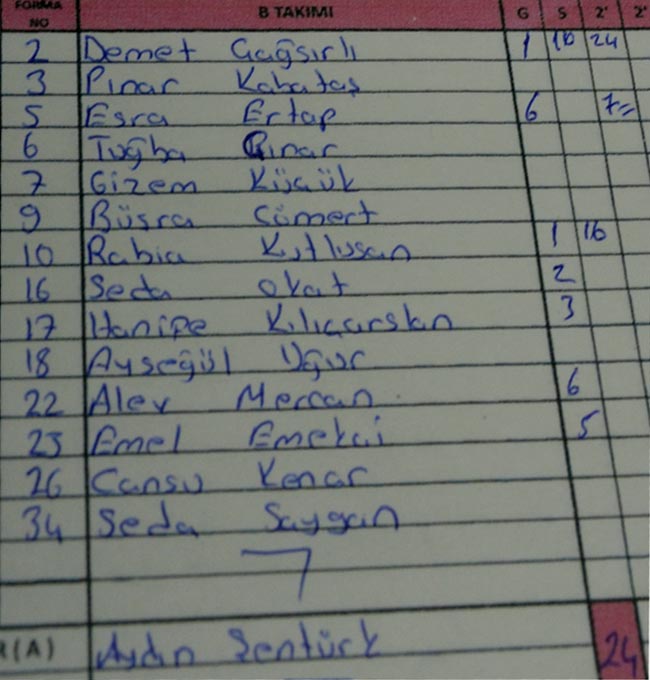 FORMA NO B TAKIMI G S 2' 2'
2 Demet Çağsırlı 1 10 24
3 Pınar Kabataş
5 Esra Ertap 6 7=
6 Tuğba Çınar
7 Gizem Küçük
9 Büşra Cömert
10 Rabia Kutluşan 1 16
16 Seda Okat 2
17 Hanife Kılıçarslan 3
18 Ayşegül Uğur
22 Alev Mercan 6
25 Emel Emekçi 5
26 Cansu Kenar
34 Seda Saygan
R(A) Aydın Şentürk 24